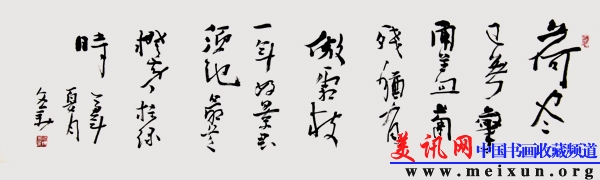 荷尽
已無擎
雨盖菊
残猶有
傲霜枝
一年好景君
須記最是
橙黄橘绿
時
夏月
美讯网 中国书画收藏频道
www.meixun.org